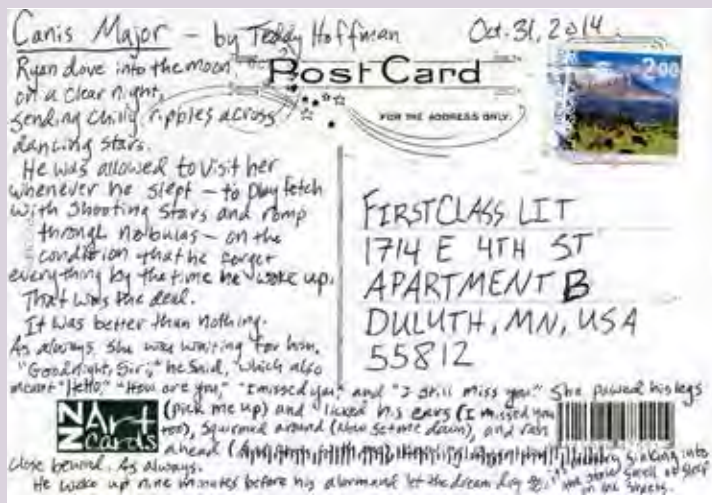 Canis Major – by Teddy Hoffman
Oct. 31, 2014
Ryan dove into the moon
on a clear night,
sending chilly ripples across
dancing stars.
He was allowed to visit her
whenever he slept – to play fetch
with shooting stars and romp
through nebulas – on the
condition that he forget
everything by the time he woke up.
That was the deal.
It was better than nothing.
As always, she was waiting for him.
"Goodnight, Siri," he said, which also
meant "Hello," "How are you," "I missed you," and "I still miss you." She pawed his legs
(pick me up) and licked his ears (I missed you
too), squirmed around (now set me down), and ran
ahead
sinking into
close behind. As always.
He woke up nine minutes before his alarm and let the dream dry
smell of sleep
on the sheets.
Post Card
FOR THE ADDRESS ONLY.
2.00
FIRST CLASS LIT
1714 E 4TH ST
APARTMENT B
DULUTH, MN, USA
55812
NZ Art Cards